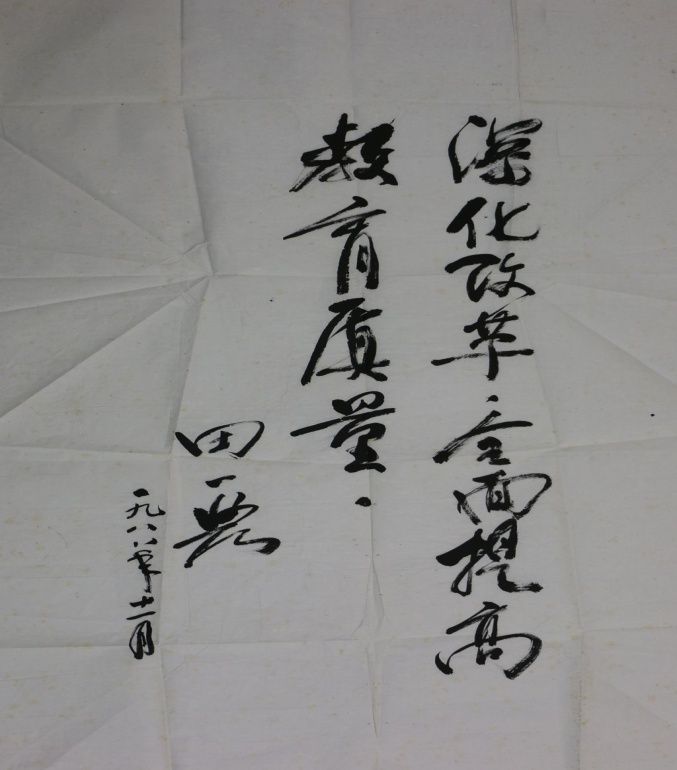 深化改革、全面提高
教育质量.
田一农
一九八八年十二月